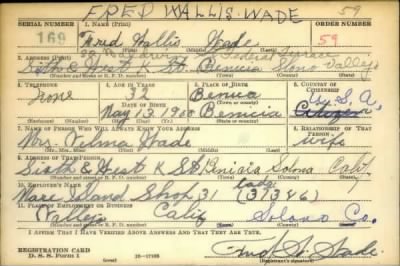 FRED WALLIS-WADE 59
SERIAL NUMBER 1. NAME (Print) ORDER NUMBER
169 Fred Wallis Wade 59
(First) (Middle) (Last)
2. ADDRESS (Print)
Federal Terrace
Sixth & St. Benicia Solano Vallejo
(Number and street or R. F. D. number) (Town) (County) (State)
3. TELEPHONE 4. AGE IN YEARS 5. PLACE OF BIRTH 6. COUNTRY OF CITIZENSHIP
None Benicia U. S. A.
DATE OF BIRTH (Town or county)
May 13 Benicia Citizen
(Exchange) (Number) (Mo.) (Day) (Yr.) (State or country)
7. NAME OF PERSON WHO WILL ALWAYS KNOW YOUR ADDRESS 8. RELATIONSHIP OF THAT PERSON
Mrs. Wade Wife
(Mr., Mrs., Miss) (First) (Middle) (Last)
9. ADDRESS OF THAT PERSON
Sixth & K St. Calif
(Number and street or R. F. D. number) (Town) (County) (State)
10. EMPLOYER'S NAME
Mare Island Shop 31 (31346)
11. PLACE OF EMPLOYMENT OR BUSINESS
Vallejo Calif Solano Co.
(Number and street or R. F. D. number) (Town) (County) (State)
I AFFIRM THAT I HAVE VERIFIED ABOVE ANSWERS AND THAT THEY ARE TRUE.
REGISTRATION CARD
D. S. S. Form 1 (over) 16-17105 Wade
(Registrant's signature)